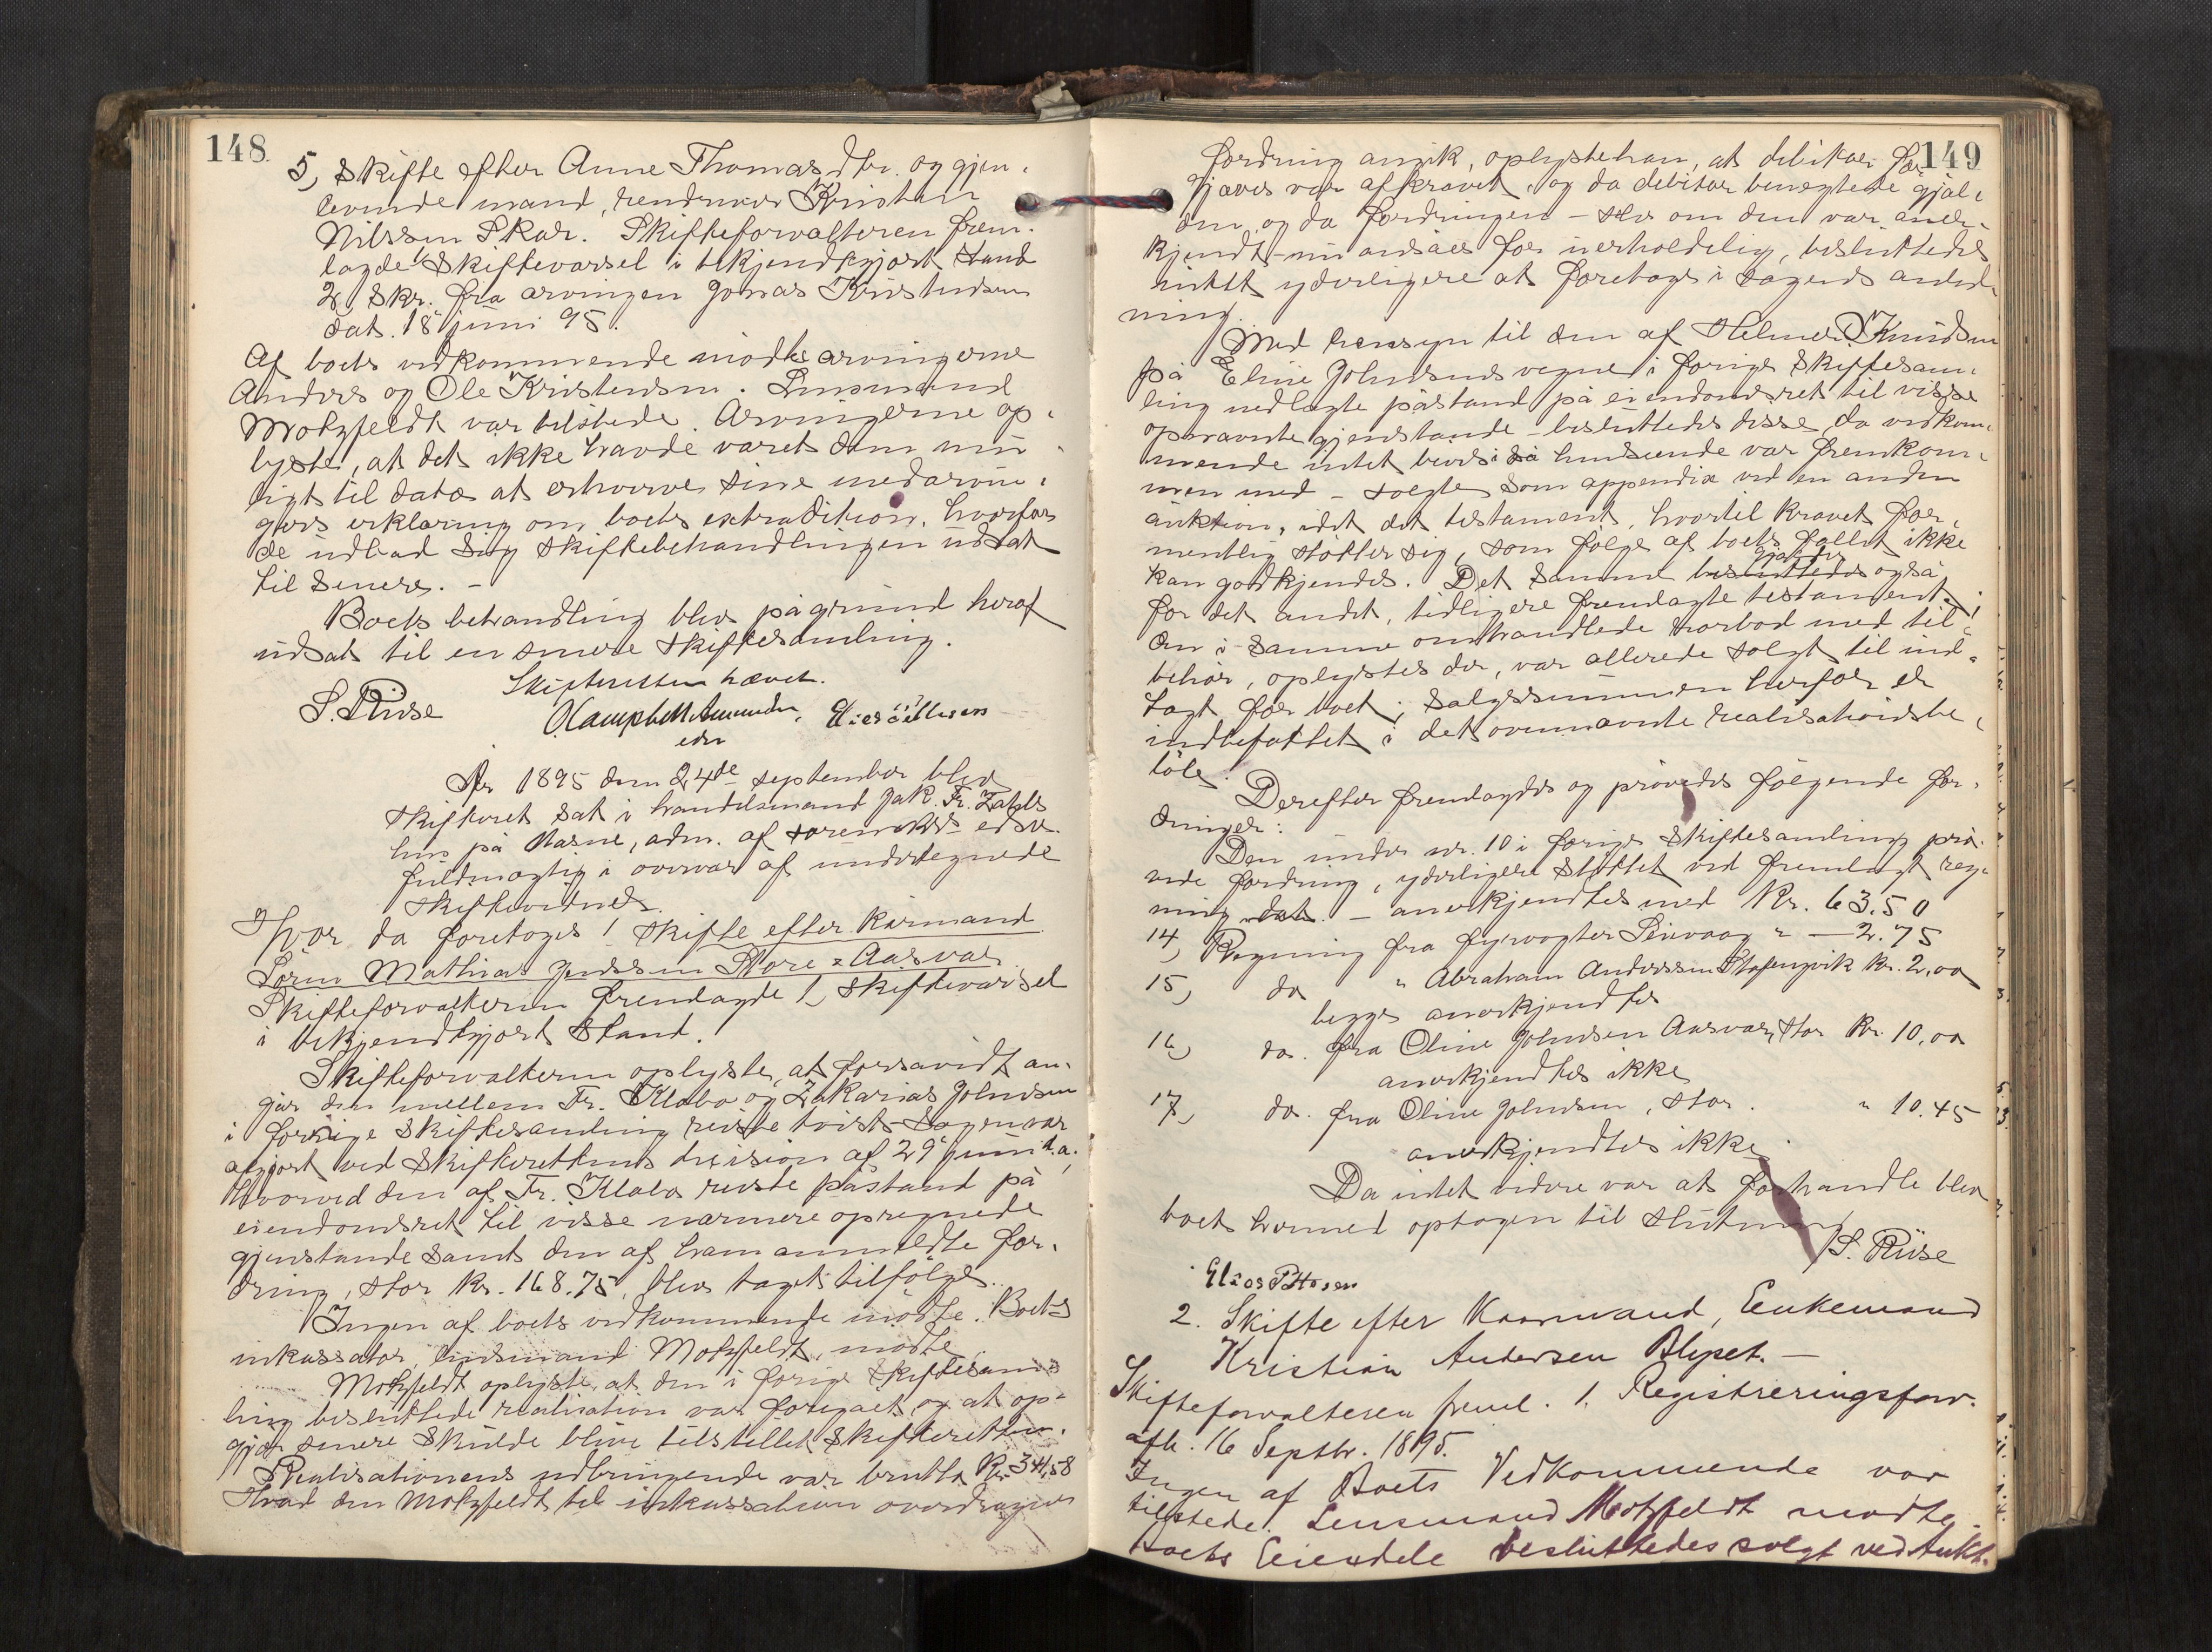 148.
5, Skifte efter Anne Thomasdtr. og gjen-
levende mand, rendruver Kristen
Nilssen Skar. Skifteforvalteren frem-
lagde 1, Skiftevarsel i bekjendtgjort stand
2, Skr. fra arvingen Jonas Kristensen
dat. 18 juni 95.
Af boets vedkommende mødte arvingerne
Anders og Ole Kristensen. Lensmand
Motzfeldt var tilstede. Arvingerne op-
lyste, at det ikke havde været dem mu-
ligt til dato at erhverve sine medarvin-
gers erklæring om boets extradition, hvorfor
de udbad sig skiftebehandlingen udsat
til senere. –
Boets behandling blev på grund heraf
udsat til en senere skiftesamling.
Skifteretten hævet.
S. Riise
O Campbell Amundsen, Elias Ottesen
edsv
År 1895 den 24de september blev
skifteret sat i handelsmand Jak. Fr. Zahls
hus på Nasne, adm. af sorenskrs edsv.
fuldmægtig i overvær af undertegnede
skiftevidner.
Hvor da foretoges 1 Skifte efter kårmand
Søren Mathias Jenssen Store-Aasvær
Skifteforvalteren fremlagde 1, Skiftevarsel
i bekjendtgjort stand.
Skifteforvalteren oplyste, at forsåvidt an-
går den mellem Fr. Klabo og Zakarias Johnsen
i forrige skiftesamling reiste tvist – Sagen var
afgjort ved skifterettens decision af 29 juni d.a.
hvorved den af Fr. Klabo reiste påstand på
eiendomsret til visse nærmere opregnede
gjenstande samt den af ham anmeldte for-
dring, stor Kr. 168.75, blev taget tilfølge.
Ingen af boets vedkommende mødte. Boets
inkassator, lensmand Motzfeldt, mødte.
Motzfeldt oplyste, at den i forrige skiftesam-
ling besluttede realisation var foregået, og at op-
gjør senere skulde blive tilstillet skifteretten.
Realisationens udbringende var brutto Kr. 341,58
Hvad den Motzfeldt til inkassation overdragne
149
fordring angik, oplyste han, at debitor for-
gjæves var afkrævet, og da debitor benegtede gjæl-
den, og da fordringen – selv om den var aner-
kjendt – nu ansåes for uerholdelig, besluttedes
intet yderligere at foretage i sagens anled-
ning.
Med hensyn til den af Helmer Knudsen
på Eline Johnsens vegne i forrige skiftesam-
ling nedlagte påstand på eiendomsret til visse
opnævnte gjenstande – besluttedes disse, da vedkom-
mende intet bevis i så henseende var fremkom-
men med – solgte som appendix ved en anden
auktion, idet det testament, hvortil kravet for-
mentlig støtter sig, som følge af boets fallit ikke
kan godkjendes. Det samme besluttedes også
gjælder
for det andet, tidligere fremlagte testament;
den i samme omhandlede norbåd med til-
behør, oplystes der, var allerede solgt til ind-
tægt for boet; salgssummen herfor er
indbefattet i det ovennævnte realisationsbe-
løb.
Derefter fremlagdes og prøvedes følgende for-
dringer:
Den under nr. 10 i forrige skiftesamling prø-
vede fordring, yderligere støttet ved fremlagt reg-
ning dat. – anerkjendtes med Kr. 63.50
14, Regning fra fyrvogter Leivaag " — 2.75
15, do " Abraham Anderssen Kr. 2,00
begge anerkjendtes
16, do. fra Oline Johnsen Aasvær, stor Kr. 10,00
anerkjendtes ikke
17, do. fra Oline Johnsen, stor. " 10.45
anerkjendtes ikke.
Da intet videre var at forhandle blev
boet hermed optagen til slutning
S. Riise
Elias Ottesen
2. Skifte efter Kaarmand, Enkemand
Kristian Andersen Alipet. —
Skifteforvalteren freml. 1. Registreringsforr.
afh. 16 Septbr. 1895.
Ingen af Boets Vedkommende var
tilstede. Lensmand Motzfeldt mødte.
Boets Eiendele besluttedes solgt ved Aukt.